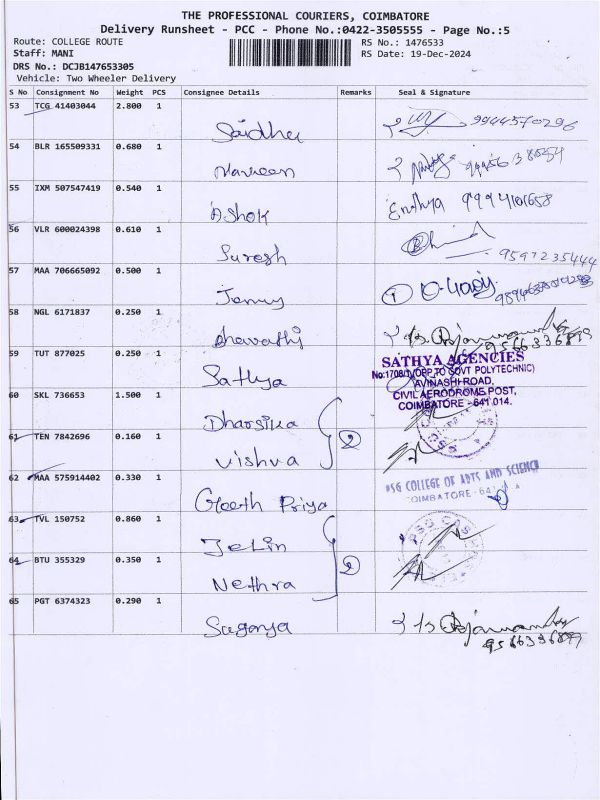 THE PROFESSIONAL COURIERS, COIMBATORE
Delivery Runsheet - PCC - Phone No.:0422-3505555 - Page No.:5
Route: COLLEGE ROUTE RS No.: 1476533
Staff: MANI RS Date: 19-Dec-2024
DRS No.: DCJB147653305
Vehicle: Two Wheeler Delivery
S No Consignment No Weight PCS Consignee Details Remarks Seal & Signature
53 TCG 41403044 2.800 1
Saidhu 9944570296
54 BLR 165509331 0.680 1
Naveen
55 IXM 507547419 0.540 1
Ashok 9994101658
56 VLR 600024398 0.610 1
Suresh 9597235444
57 MAA 706665092 0.500 1
Jenny
58 NGL 6171837 0.250 1
Bharathi 9566336899
59 TUT 877025 0.250 1
Sathya
SATHYA AGENCIES
No:1708/1(OPP.TO GOVT POLYTECHNIC)
AVINASHI ROAD,
CIVIL AERODROME POST,
COIMBATORE - 641 014.
60 SKL 736653 1.500 1
Dharsika
2
61 TEN 7842696 0.160 1
Vishva
62 MAA 575914402 0.330 1
PSG COLLEGE OF ARTS AND SCIENCE
COIMBATORE - 641
Geeth Priya
63 TVL 150752 0.860 1
Jelin
2
64 BTU 355329 0.350 1
Nethra
65 PGT 6374323 0.290 1
Suganya